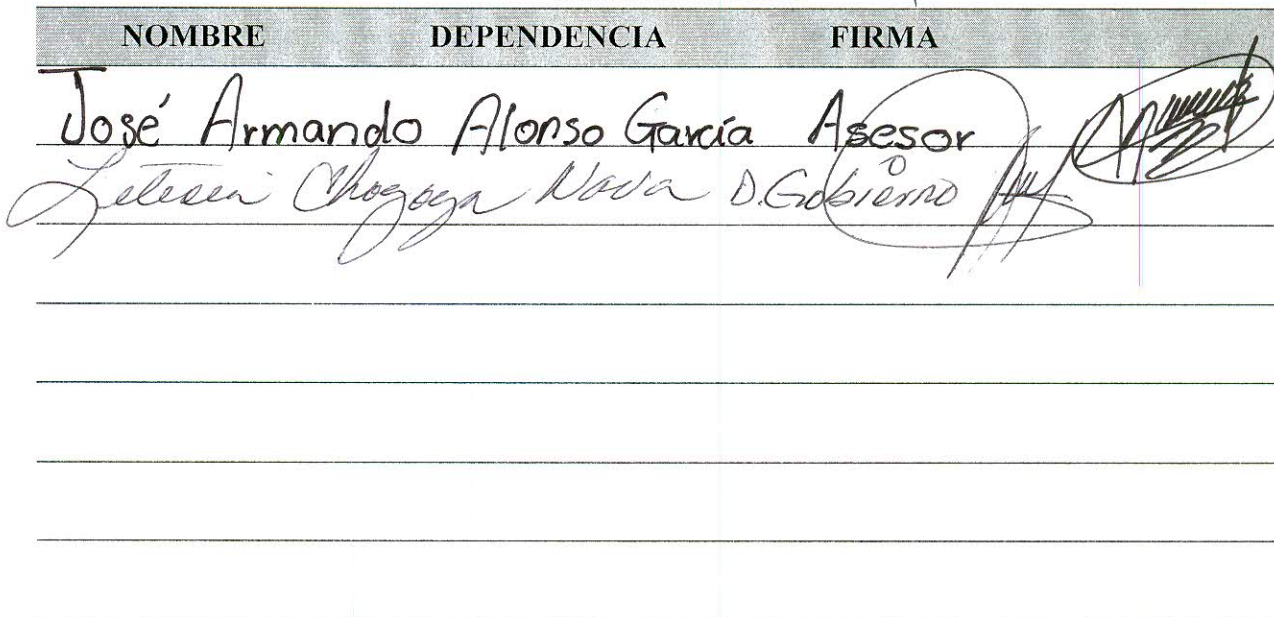 NOMBRE DEPENDENCIA FIRMA
José Armando Alonso García Asesor
Leticia Nava D.Gobierno